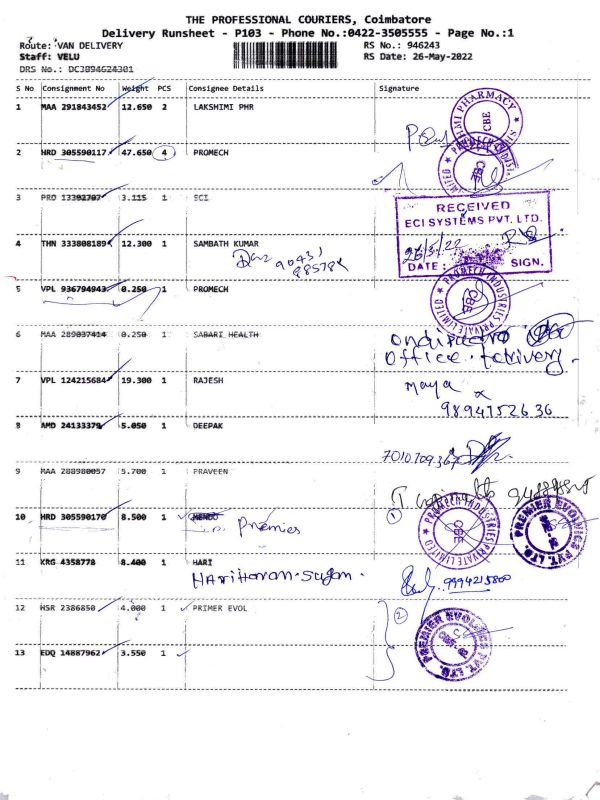 THE PROFESSIONAL COURIERS, Coimbatore
Delivery Runsheet - P103 - Phone No.:0422-3505555 - Page No.:1
Route: VAN DELIVERY RS No.: 946243
Staff: VELU RS Date: 26-May-2022
DRS No.: DCJB94624301
S No Consignment No Weight PCS Consignee Details Signature
1 MAA 291843452 12.650 2 LAKSHIMI PHR
PHARMACY
CBE
2 HRD 305590117 47.650 4 PROMECH
CBE
3 PRO 13392707 3.115 1 SCI
RECEIVED
ECI SYSTEMS PVT. LTD.
26/5/22
DATE: SIGN.
4 THN 333808189 12.300 1 SAMBATH KUMAR
5 VPL 936794943 0.250 1 PROMECH
PROMECH INDUSTRIES PRIVATE LIMITED
CBE
6 MAA 289037414 0.250 1 SABARI HEALTH
office
7 VPL 124215684 19.300 1 RAJESH
maya
9894752636
8 AMD 24133379 5.050 1 DEEPAK
9 MAA 288980057 5.700 1 PRAVEEN
10 HRD 305590170 8.500 1
Premies
1
PROMECH INDUSTRIES PRIVATE LIMITED
CBE
PREMIER EVOLVICS PVT. LTD.
11 KRG 4358778 8.400 1 HARI
Hariharan
9994215800
12 HSR 2386850 4.000 1 PRIMER EVOL
2
PREMIER EVOLVICS PVT. LTD.
13 EDQ 14887962 3.550 1